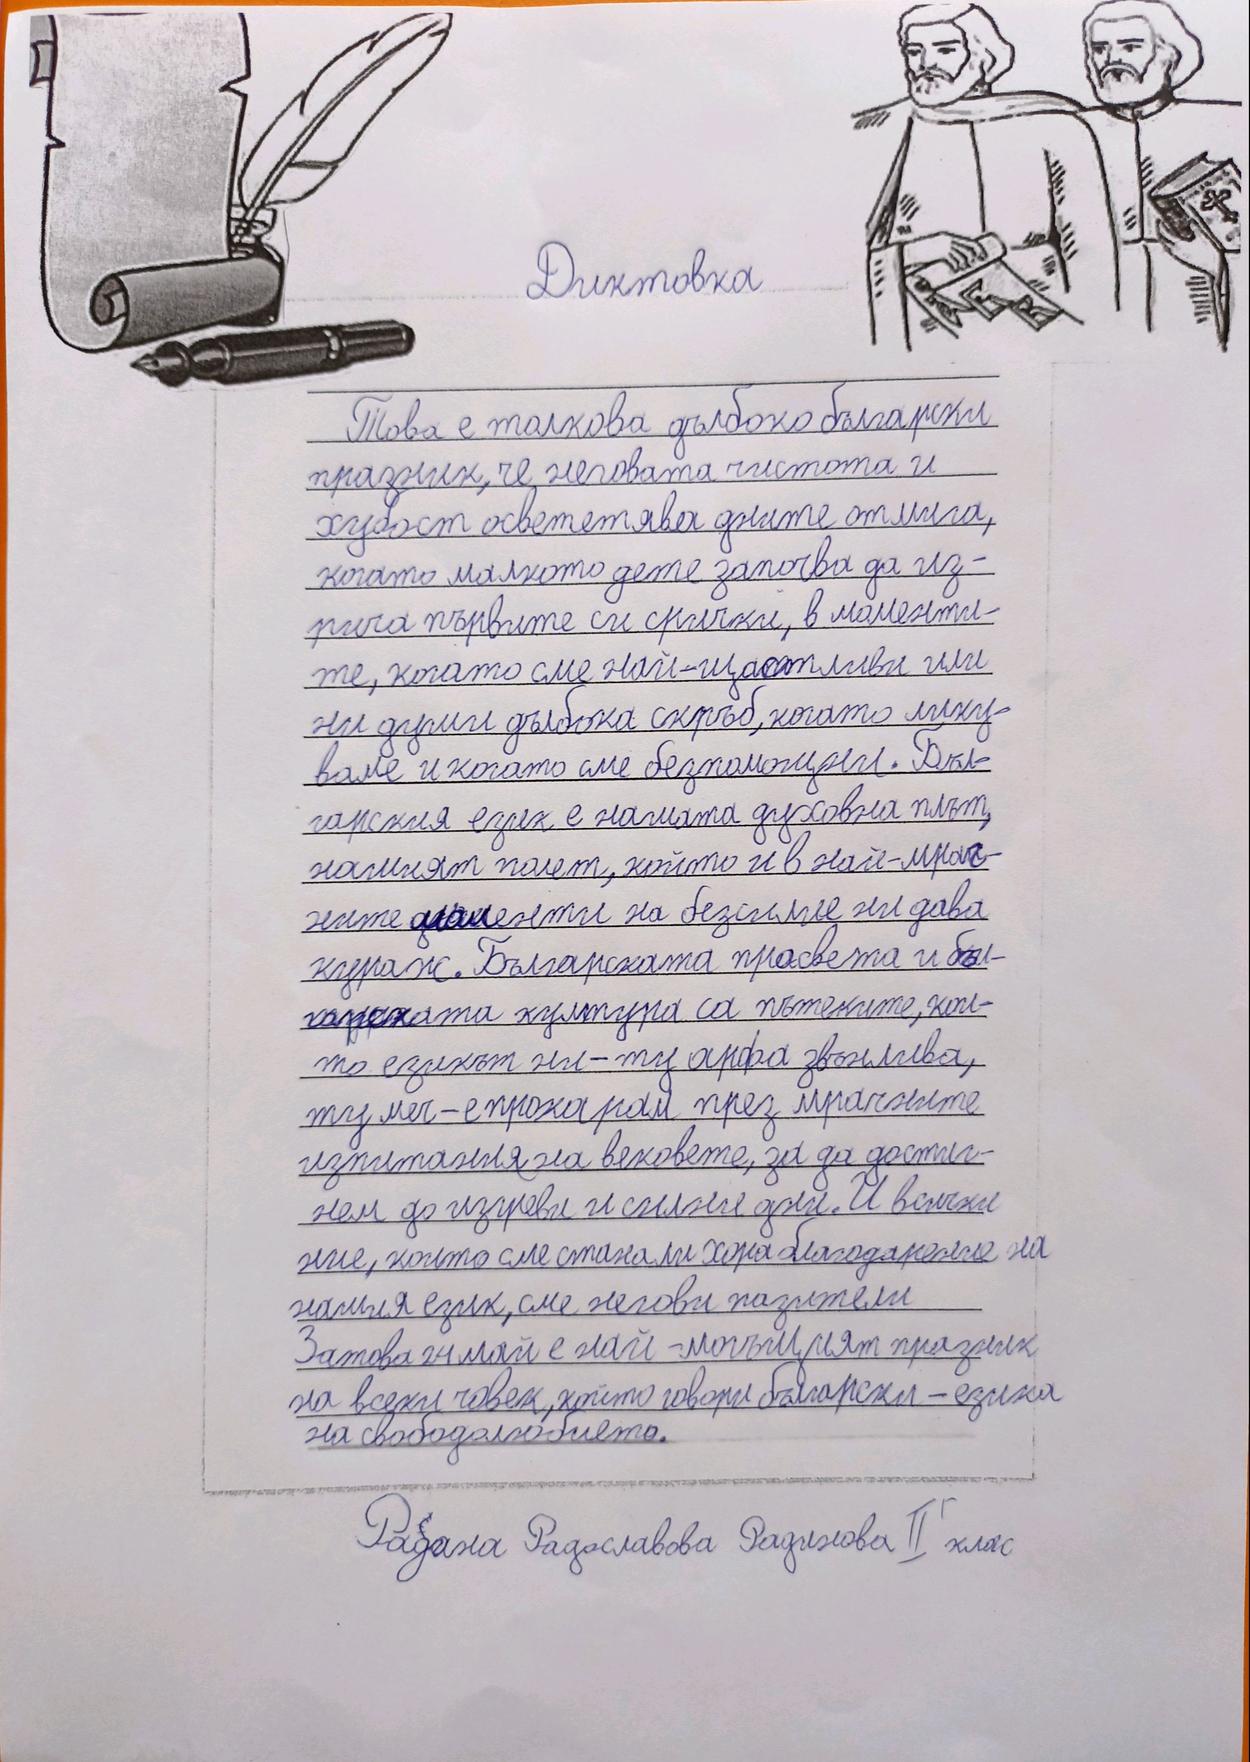 Диктовка
Това е толкова дълбоко български
празник, че неговата чистота и
хубост освететява дните от мига,
когато малкото дете започва да из-
рича първите си срички, в моменти-
те, когато сме най-щастливи или
ни души дълбока скръб, когато лику-
ваме и когато сме безпомощни. Бъл-
гарския език е нашата духовна плът,
нашият полет, който и в най-мрач-
ните моменти на безсилие ни дава
кураж. Българската просвета и бъл-
гарската култура са пътеките, кои-
то езикът ни-ту арфа звънлива,
ту меч-е прокарал през мрачните
изпитания на вековете, за да достиг-
нем до изгреви и силни дни. И всички
ние, които сме станали хора благодарение на
нашия език, сме негови пазители
Затова 24 май е най-могъщият празник
на всеки човек, който говори български - езика
на свободолюбието.
Радана Радославова Радинова II г клас